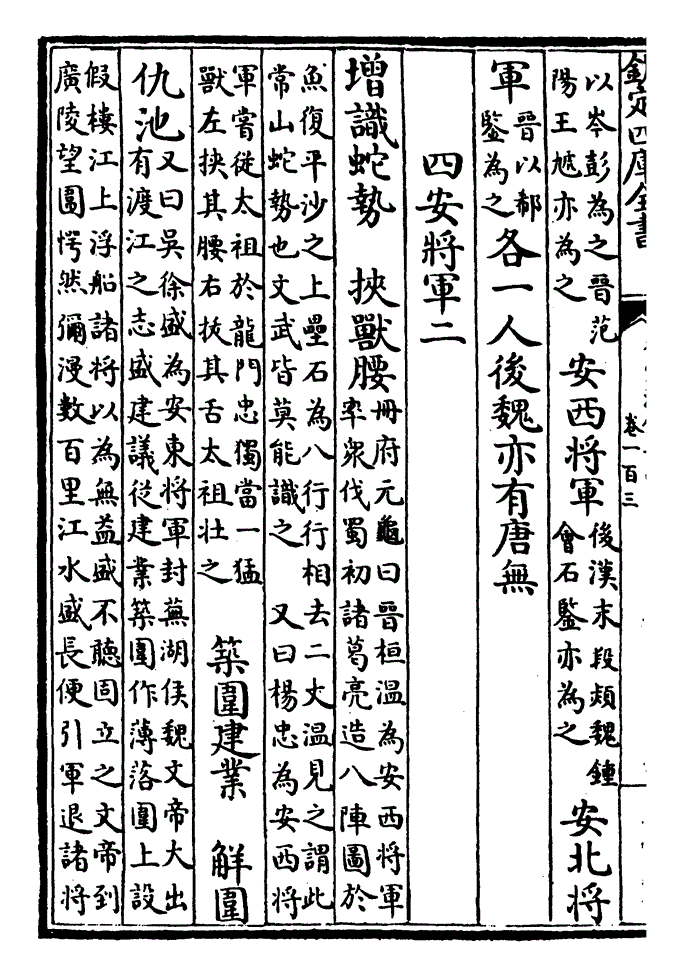 欽定四庫全書
卷一百三
以岑彭為之晉范
陽王虓亦為之
安西將軍
後漢末段熲魏鍾
會石鑒亦為之
安北將
軍
晉以郗
鑒為之
各一人後魏亦有唐無
四安將軍二
增識蛇勢 挾獸腰
冊府元龜曰晉桓溫為安西將軍
率衆伐蜀初諸葛亮造八陣圖於
魚復平沙之上壘石為八行行相去二丈溫見之謂此
常山蛇勢也文武皆莫能識之 又曰楊忠為安西將
軍嘗從太祖於龍門忠獨當一猛
獸左挾其腰右拔其舌太祖壯之
築圍建業 解圍
仇池
又曰吳徐盛為安東將軍封蕪湖侯魏文帝大出
有渡江之志盛建議從建業築圍作薄落圍上設
假樓江上浮船諸將以為無益盛不聽固立之文帝到
廣陵望圍愕然彌漫數百里江水盛長便引軍退諸將